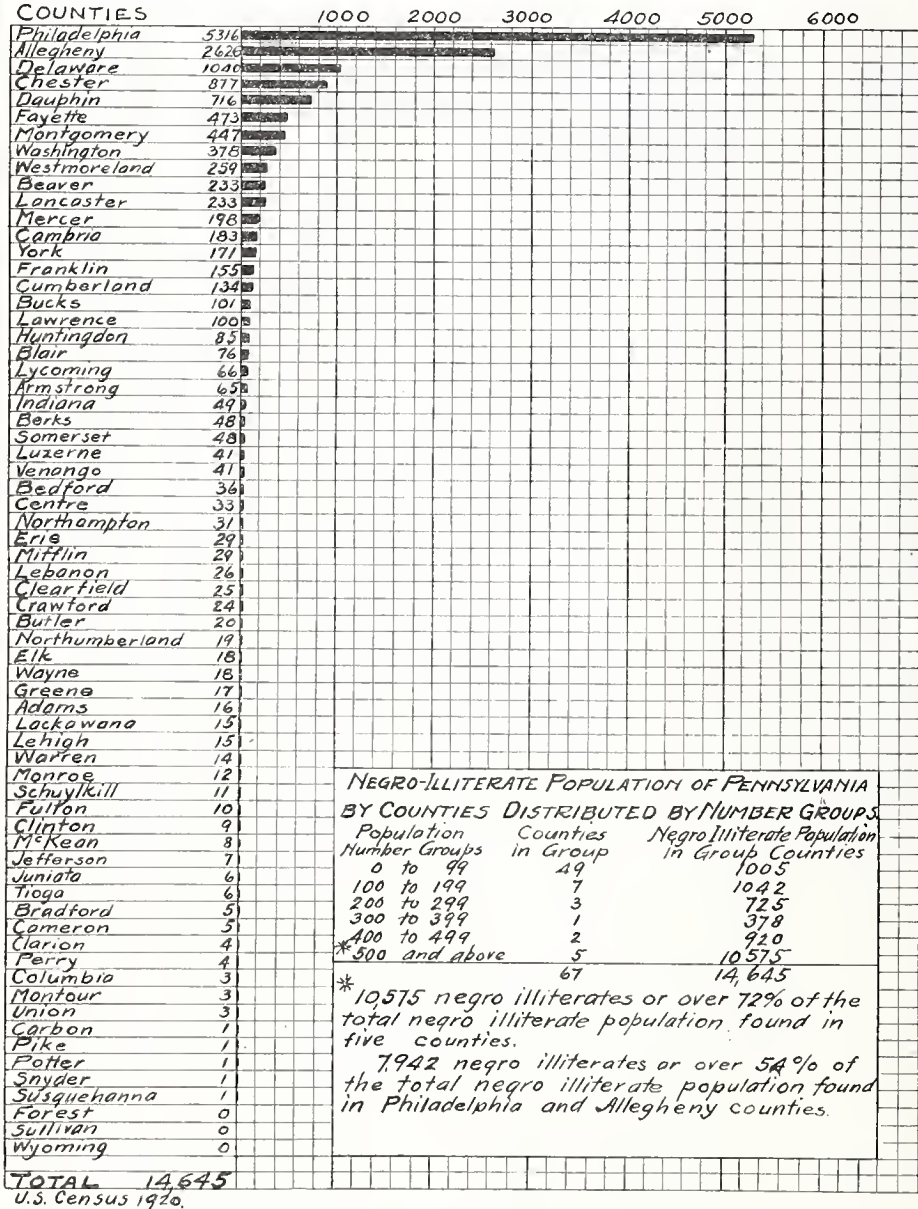 COUNTIES 1000 2000 3000 4000 5000 6000
Philadelphia 5316
Allegheny 2626
Delaware 1040
Chester 877
Dauphin 716
Fayette 473
Montgomery 447
Washington 378
Westmoreland 259
Beaver 233
Lancaster 233
Mercer 198
Cambria 183
York 171
Franklin 155
Cumberland 134
Bucks 101
Lawrence 100
Huntingdon 85
Blair 76
Lycoming 66
Armstrong 65
Indiana 49
Berks 48
Somerset 48
Luzerne 41
Venango 41
Bedford 36
Centre 33
Northampton 31
Erie 29
Mifflin 29
Lebanon 26
Clearfield 25
Crawford 24
Butler 20
Northumberland 19
Elk 18
Wayne 18
Greene 17
Adams 16
Lackawana 15
Lehigh 15
Warren 14
Monroe 12
Schuylkill 11
Fulton 10
Clinton 9
McKean 8
Jefferson 7
Juniata 6
Tioga 6
Bradford 5
Cameron 5
Clarion 4
Perry 4
Columbia 3
Montour 3
Union 3
Carbon 1
Pike 1
Potter 1
Snyder 1
Susquehanna 1
Forest 0
Sullivan 0
Wyoming 0
TOTAL 14,645
U.S. Census 1920.
NEGRO-ILLITERATE POPULATION OF PENNSYLVANIA
BY COUNTIES DISTRIBUTED BY NUMBER GROUPS.
Population Counties Negro Illiterate Population
Number Groups in Group in Group Counties
0 to 99 49 1005
100 to 199 7 1042
200 to 299 3 725
300 to 399 1 378
400 to 499 2 920
*500 and above 5 10575
67 14,645
* 10,575 negro illiterates or over 72% of the
total negro illiterate population found in
five counties.
7,942 negro illiterates or over 54% of
the total negro illiterate population found
in Philadelphia and Allegheny counties.